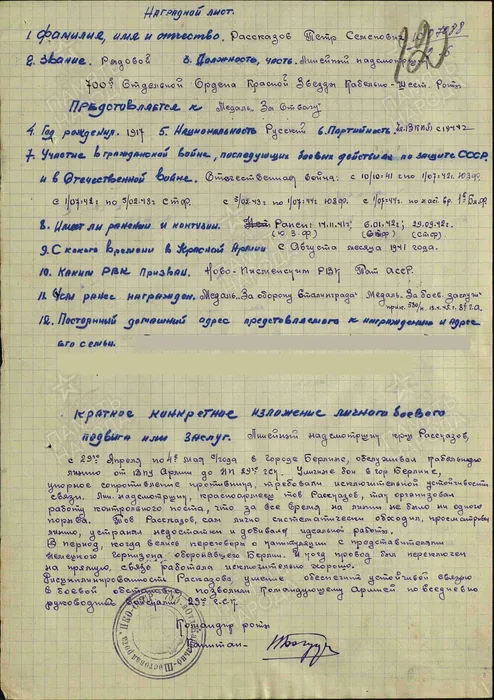 Наградной лист.
1. Фамилия, имя и отчество. Рассказов Петр Семенович
2. Звание. Рядовой 3. Должность, часть. Линейный надсмотрщик
700й Отдельной Ордена Красной Звезды Кабельно-Шест. Роты
Предстовляется к Медаль "За Отвагу"
4. Год рождения. 1917 5. Национальность Русский 6. Партийность. Чл.ВКП(б) с 1944 г.
7. Участие в гражданской войне, последующих боевых действиях по защите СССР
и в Отечественной войне. Отечественная война: с 10/10.41 по 1/07.42г. ЮЗФ.
с 1/07.42г. по 5/02.43г. СТФ. с 5/02.43г. по 1/07.44г. ЮЗФ. с 1/07.44г. по наст. вр. 1й Б.Ф.
8. Имеет ли ранении и контузии. Ранен: 14.11.41г. 6.01.42г. 29.09.42г.
(Ю.З.Ф) (СТФ)
9. С какого времени в Красной Армии с Августа месяца 1941 года.
10. Каким РВК призван. Ново-Писменским РВК Тат АССР.
11. Чем ранее награжден. Медаль "За оборону Сталинграда" Медаль "За боев. заслуги"
12. Постоянный домашний адрес предстовляемого к награждению и адрес
его семьи.
Краткое конкретное изложение личного боевого
подвига или заслуг. Линейный надсмотрщик кр-ц Рассказов,
с 29го Апреля по 4е мая с/года в городе Берлине, обслуживал кабельную
линию от ВПУ Армии до НП 29го гск. Уличные бои в гор Берлине,
упорное сопротивление противника, требовали исключительной устойчивости
связи. Лин. надсмотрщик, красноармеец тов Рассказов, так организовал
работу контрольного поста, что за все время на линии не было ни одного
порыва. Тов Рассказов, сам лично систематически обходил, просматривал
линию, устранял недостатки и добивался идеальной работы.
В период, когда велись переговоры о капитуляции с представителями
Немецкого гарнизона оборонявшего Берлин. И когда провод был переключен
на прямую, связь работала исключительно хорошо.
Дисциплинированность Расказова, умение обеспечить устойчивой связью
в боевой обстановке, позволили Командующему Армией повседневно
руководить войсками 29го г.С.К.
Командир роты
Капитан-